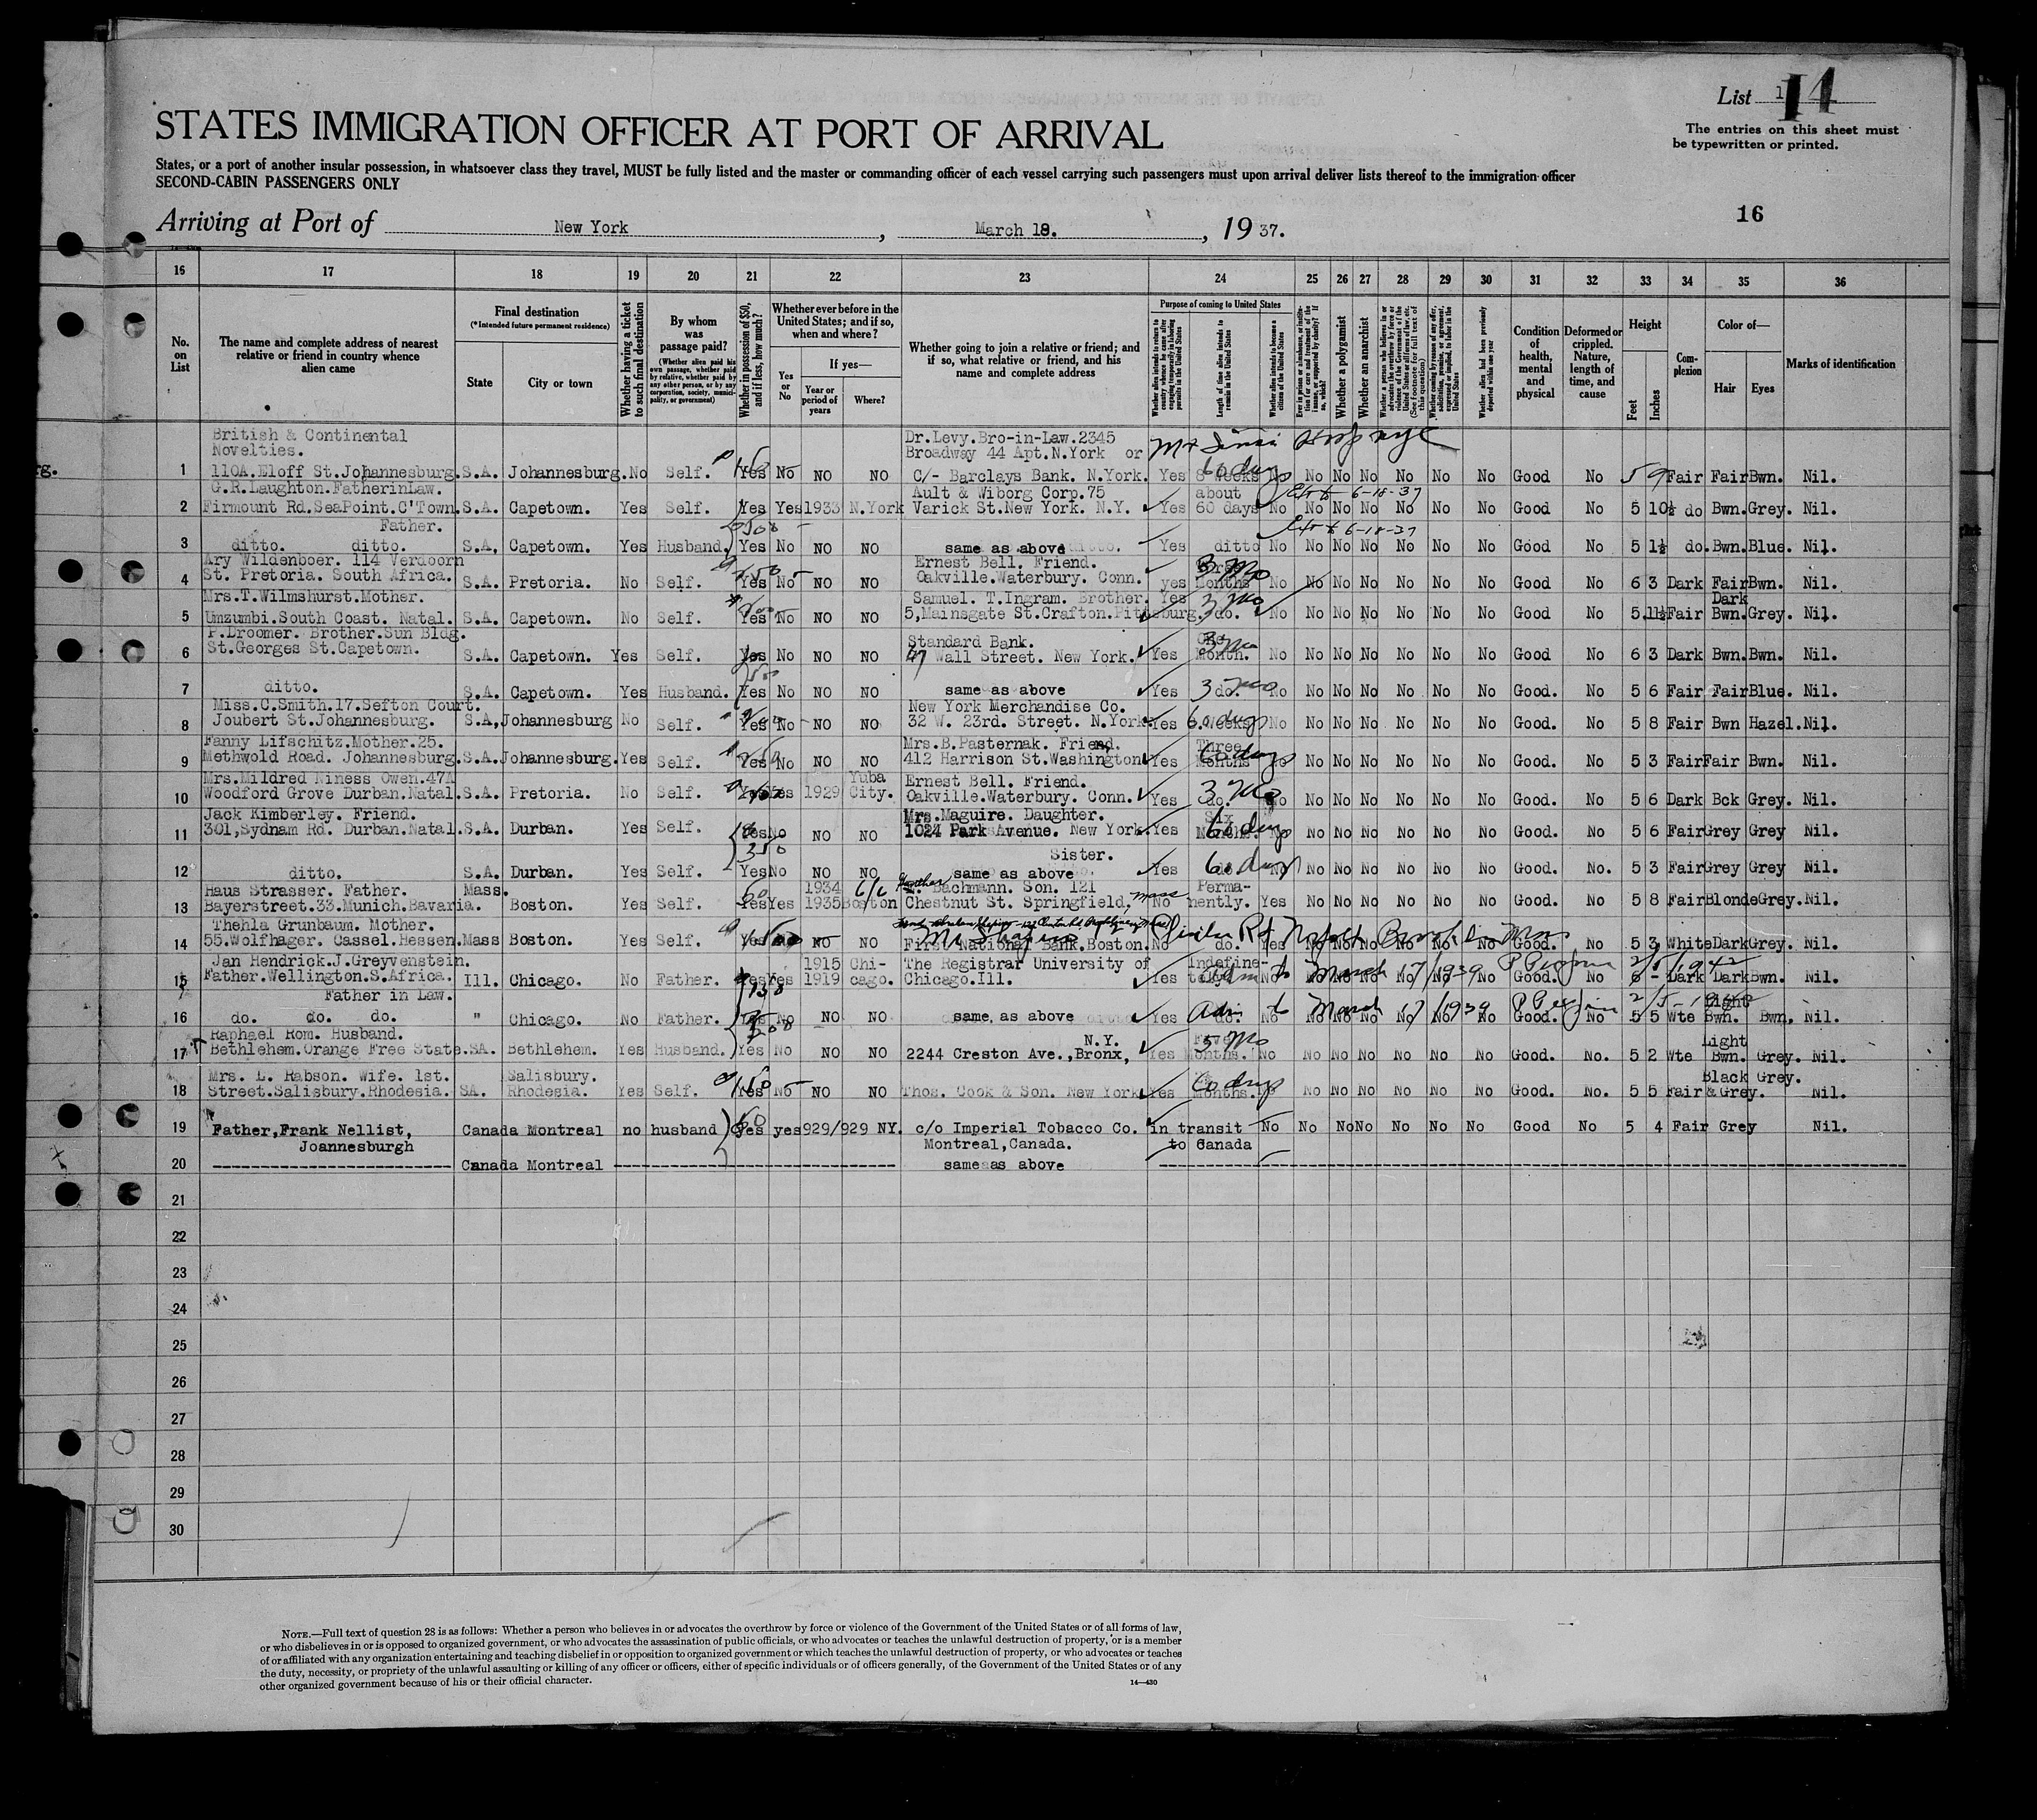 List 14
The entries on this sheet must
be typewritten or printed.
STATES IMMIGRATION OFFICER AT PORT OF ARRIVAL
States, or a port of another insular possession, in whatsoever class they travel, MUST be fully listed and the master or commanding officer of each vessel carrying such passengers must upon arrival deliver lists thereof to the immigration officer
SECOND-CABIN PASSENGERS ONLY
16
Arriving at Port of New York, March 18., 1937.
16 17 18 19 20 21 22 23 24 25 26 27 28 29 30 31 32 33 34 35 36
No. on List
The name and complete address of nearest relative or friend in country whence alien came
Final destination
(*Intended future permanent residence)
State
City or town
Whether having a ticket to such final destination
By whom was passage paid?
(Whether alien paid his own passage, whether paid by relative, whether paid by any other person, or by any corporation, society, municipality, or government)
Whether in possession of $50, and if less, how much?
Whether ever before in the United States; and if so, when and where?
Yes or No
If yes—
Year or period of years
Where?
Whether going to join a relative or friend; and if so, what relative or friend, and his name and complete address
Purpose of coming to United States
Whether alien intends to return to country whence he came after engaging temporarily in laboring pursuits in the United States
Length of time alien intends to remain in the United States
Whether alien intends to become a citizen of the United States
Whether a polygamist
Whether an anarchist
Whether alien had been previously deported within one year
Condition of health, mental and physical
Deformed or crippled. Nature, length of time, and cause
Height
Feet
Inches
Complexion
Color of—
Hair
Eyes
Marks of identification
British & Continental Dr.Levy.Bro-in-Law.2345
Novelties. Broadway 44 Apt.N.York or
1 110A.Eloff St.Johannesburg. S.A. Johannesburg. No Self. Yes No NO NO C/- Barclays Bank. N.York. Yes 8 weeks No No No No No No No Good No 5 9 Fair Fair Bwn. Nil.
60 days
G.R.Laughton.FatherinLaw. Ault & Wiborg Corp.75 about 6-18-37
2 Firmount Rd.SeaPoint.C'Town. S.A. Capetown. Yes Self. Yes Yes 1933 N.York Varick St.New York. N.Y. Yes 60 days No No No No No No No Good No 5 10½ do Bwn. Grey. Nil.
Father. 6-18-37
3 ditto. ditto. S.A, Capetown. Yes Husband. Yes No NO NO same as above Yes ditto No No No No No No No Good No 5 1½ do. Bwn. Blue. Nil.
Ary Wildenboer. 114 Verdoorn Ernest Bell. Friend. 3 Mo
4 St. Pretoria. South Africa. S.A. Pretoria. No Self. Yes No NO NO Oakville.Waterbury. Conn. yes Months No No No No No No No Good No 6 3 Dark Fair Bwn. Nil.
Mrs.T.Wilmshurst.Mother. Samuel. T.Ingram. Brother. Yes 3 Mo Dark
5 Umzumbi.South Coast. Natal. S.A. Capetown. No Self. Yes No NO NO 5,Mainsgate St.Crafton.Pittsburg. do. No No No No No No No Good No 5 11½ Fair Bwn. Grey. Nil.
P.Droomer. Brother.Sun Bldg. Standard Bank. One
6 St.Georges St.Capetown. S.A. Capetown. Yes Self. Yes No NO NO 47 Wall Street. New York. Yes Month. No No No No No No No Good No 6 3 Dark Bwn. Bwn. Nil.
7 ditto. S.A. Capetown. Yes Husband. Yes No NO NO same as above Yes 3 Mo do. No No No No No No No Good. No 5 6 Fair Fair Blue. Nil.
Miss.C.Smith.17.Sefton Court. New York Merchandise Co.
8 Joubert St.Johannesburg. S.A, Johannesburg No Self. Yes No NO NO 32 W. 23rd. Street. N.York Yes 6 Weeks No No No No No No No Good. No 5 8 Fair Bwn Hazel. Nil.
60 days
Fanny Lifschitz.Mother.25. Mrs.B.Pasternak. Friend. Three
9 Methwold Road. Johannesburg. S.A. Johannesburg. Yes Self. Yes No NO NO 412 Harrison St.Washington Yes Months No No No No No No No Good. No 5 3 Fair Fair Bwn. Nil.
60 days
Mrs.Mildred Niness Owen.47A Yuba Ernest Bell. Friend.
10 Woodford Grove Durban.Natal. S.A. Pretoria. No Self. Yes Yes 1929 City. Oakville.Waterbury. Conn. Yes do. No No No No No No No Good. No 5 6 Dark Bck Grey. Nil.
3 Mo
Jack Kimberley. Friend. Mrs.Maguire. Daughter. Six
11 301,Sydnam Rd. Durban.Natal. S.A. Durban. Yes Self. Yes No NO NO 1024 Park Avenue. New York Yes Months. No No No No No No No Good. No 5 6 Fair Grey Grey Nil.
60 days
350 Sister.
12 ditto. S.A. Durban. Yes Self. Yes No NO NO same as above Yes do. No No No No No No No Good. No. 5 3 Fair Grey Grey Nil.
60 days
Haus Strasser. Father. Mass. 1934 Bachmann. Son. 121 Perma-
13 Bayerstreet.33.Munich.Bavaria. Boston. Yes Self. Yes Yes 1935 Boston Chestnut St. Springfield, Mass No nently. Yes No No No No No No Good. No 5 8 Fair Blonde Grey. Nil.
Thehla Grunbaum. Mother.
14 55.Wolfhager. Cassel.Hessen. Mass Boston. Yes Self. NO NO First National Bank.Boston. No do. Yes No No No No No No Good. No 5 3 White Dark Grey. Nil.
Jan Hendrick.J.Greyvenstein. 1915 Chi- The Registrar University of Indefine-
15 Father.Wellington.S.Africa. Ill. Chicago. No Father. Yes Yes 1919 cago. Chicago.Ill. Yes tely. No No No No No No No Good. No 6 - Dark Dark Bwn. Nil.
Adm to March 17/1939
Father in Law. Light
16 do. do. do. " Chicago. No Father. Yes No NO NO same as above Yes do. No No No No No No No Good. No 5 5 Wte Bwn. Bwn. Nil.
Adm to March 17/1939
Raphael Rom. Husband. N.Y. Five Light
17 Bethlehem.Orange Free State. SA. Bethlehem. Yes Husband. Yes No NO NO 2244 Creston Ave.,Bronx, Yes Months. No No No No No No No Good. No. 5 2 Wte Bwn. Grey. Nil.
5 Mo
Mrs. L. Rabson. Wife. 1st. Salisbury. Black Grey.
18 Street.Salisbury.Rhodesia. SA. Rhodesia. Yes Self. Yes No NO NO Thos. Cook & Son. New York Yes Months. No No No No No No Good. No. 5 5 Fair & Grey. Nil.
60 days
19 Father,Frank Nellist, Canada Montreal no husband Yes yes 929/929 NY. c/o Imperial Tobacco Co. in transit No No No No No No No Good No 5 4 Fair Grey Nil.
Joannesburgh Montreal,Canada. to Canada
20 Canada Montreal same as above
21
22
23
24
25
26
27
28
29
30
NOTE.—Full text of question 28 is as follows: Whether a person who believes in or advocates the overthrow by force or violence of the Government of the United States or of all forms of law,
or who disbelieves in or is opposed to organized government, or who advocates the assassination of public officials, or who advocates or teaches the unlawful destruction of property, or is a member
of or affiliated with any organization entertaining and teaching disbelief in or opposition to organized government or which teaches the unlawful destruction of property, or who advocates or teaches
the duty, necessity, or propriety of the unlawful assaulting or killing of any officer or officers, either of specific individuals or of officers generally, of the Government of the United States or of any
other organized government because of his or their official character.
14—430